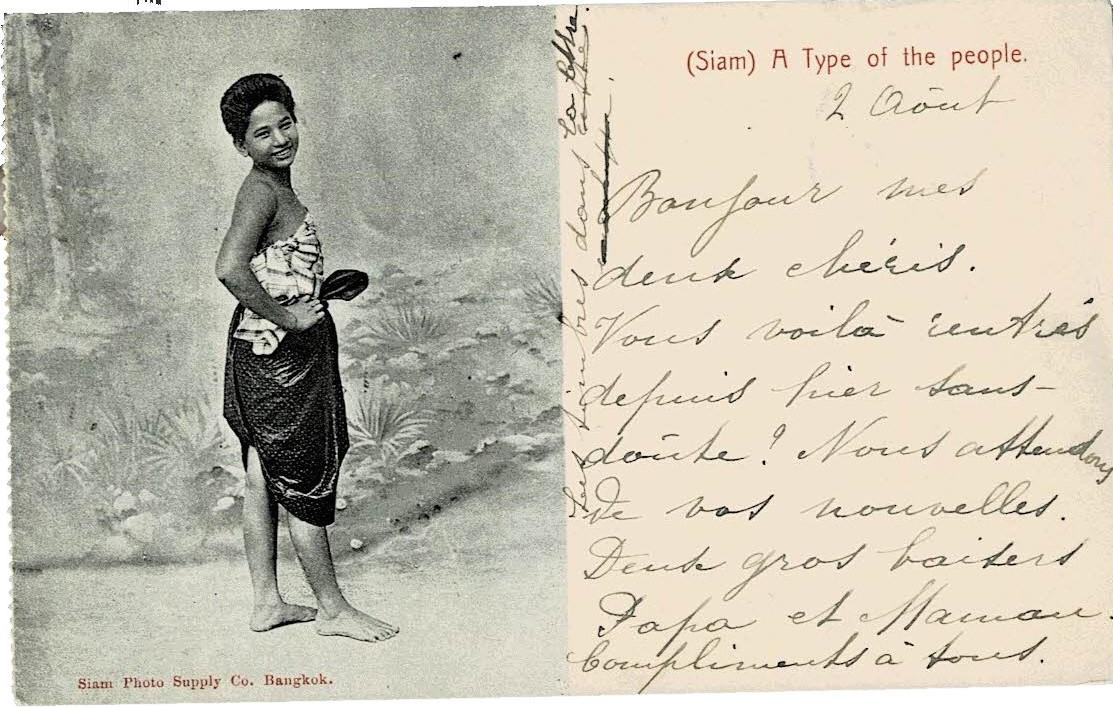 (Siam) A Type of the people.
2 Aôut
Bonjour mes
deux chéris.
Vous voilà rentrés
depuis hier sans-
doûte? Nous attendons
de vos nouvelles.
Deux gros baisers
Papa et Maman.
Compliments à tous.
timbres dans la
Siam Photo Supply Co. Bangkok.